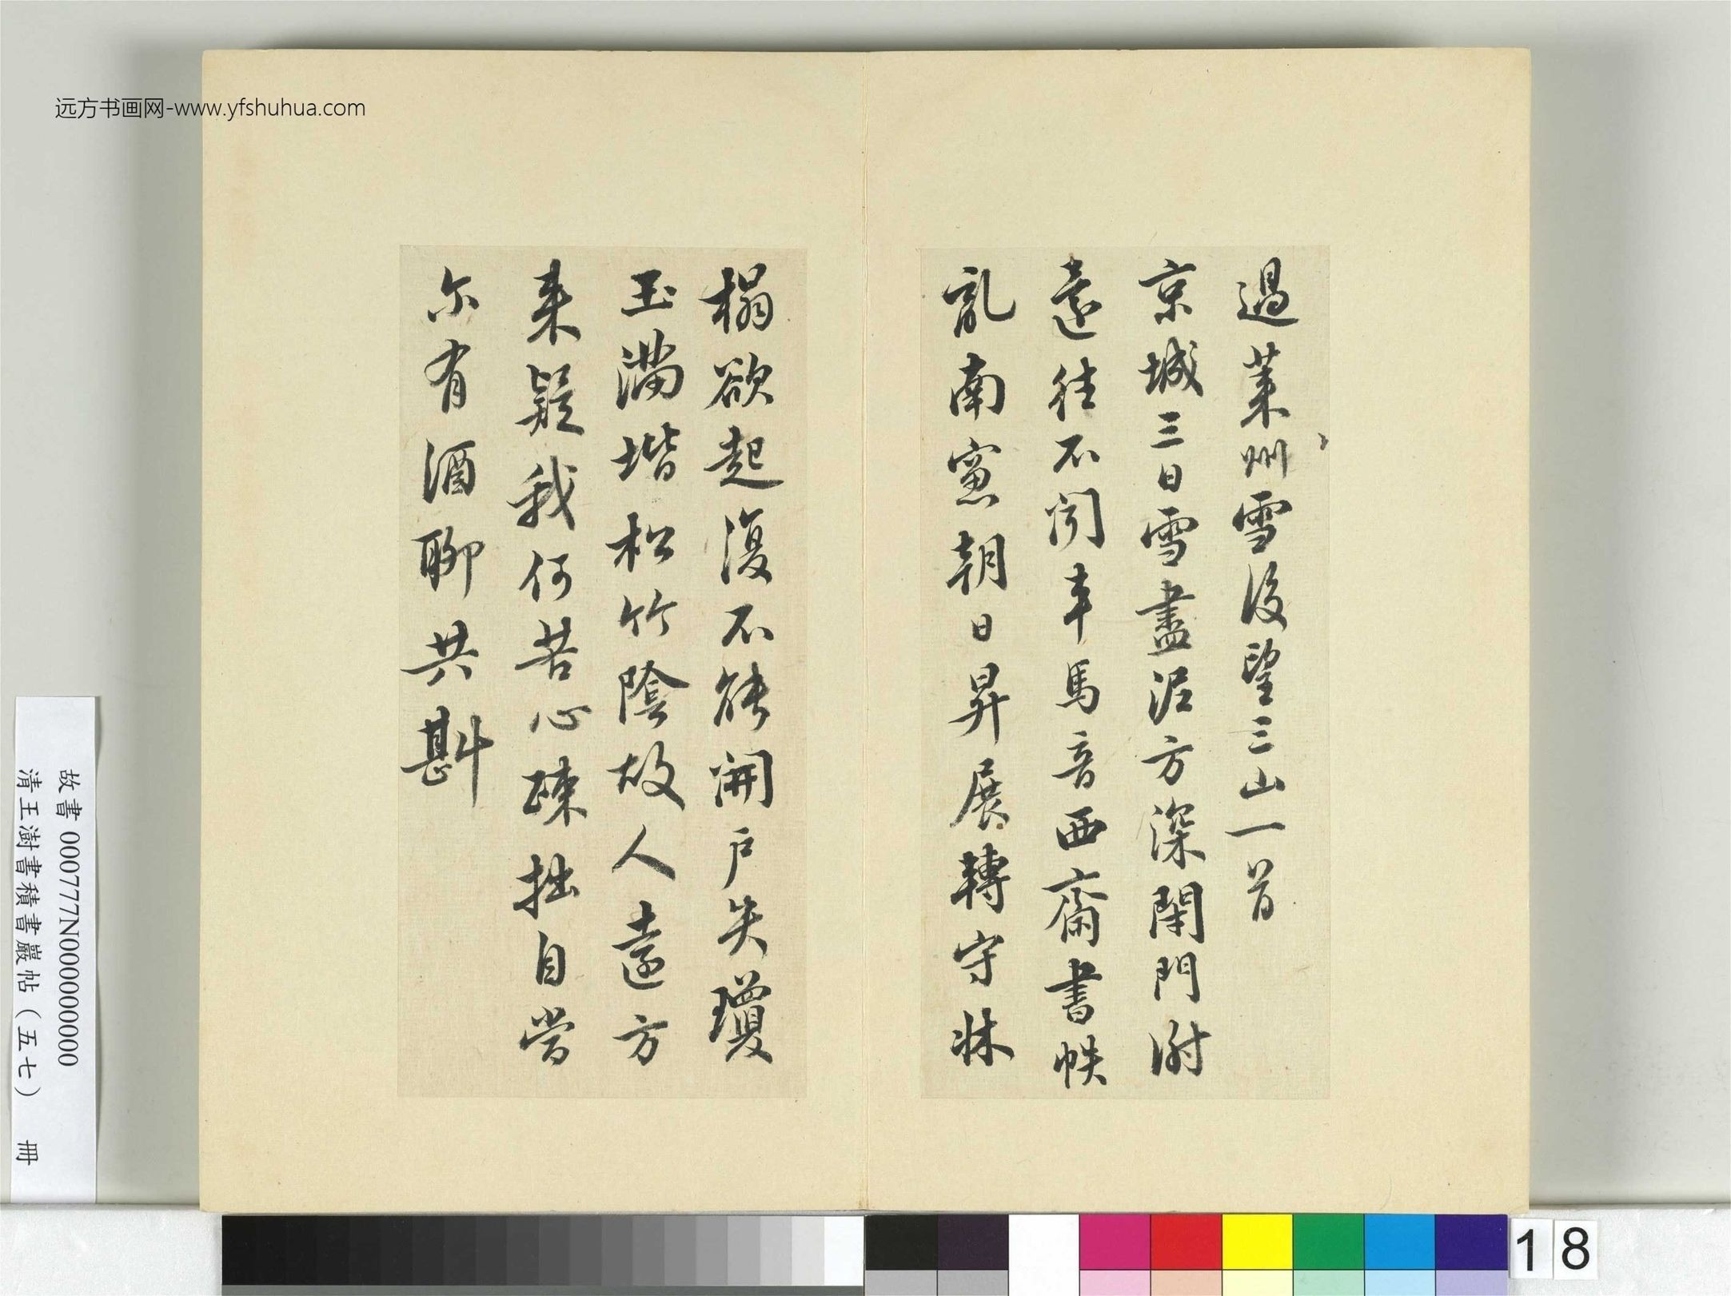 远方书画网-www.yfshuhua.com
過萊州雪後望三山一首
京城三日雪盡泥方深閉門謝
遠往不聞車馬音西齋書帙
亂南窻朝日昇展轉守牀
榻欲起復不能開户失瓊
玉滿堦松竹陰故人遠方
来疑我何苦心疎拙自當
尔有酒聊共斟
故書 000777N000000000
清王澍書積書巖帖（五七） 冊
18